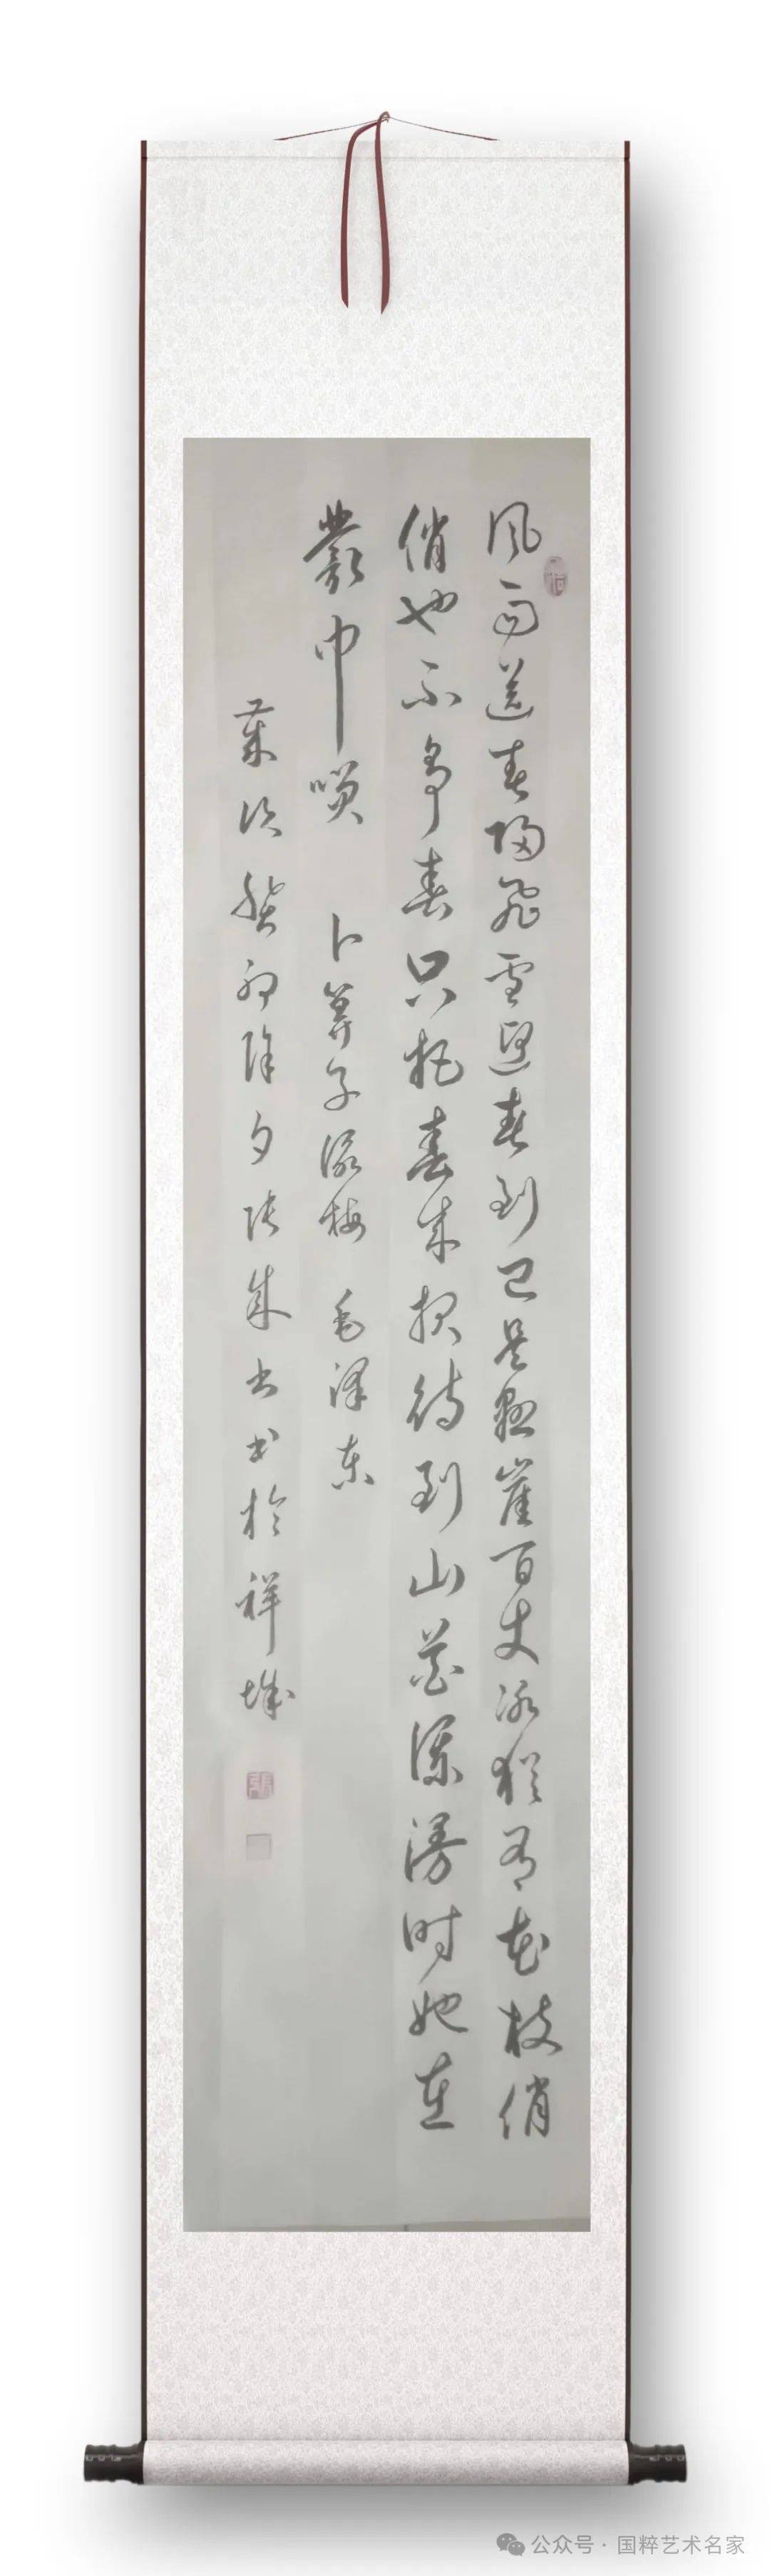 风雨送春归飞雪迎春到已是悬崖百丈冰犹有花枝俏
俏也不争春只把春来报待到山花烂漫时她在
叢中咲 卜算子咏梅 毛泽东
岁次癸卯除夕张书於祥城
公众号·国粹艺术名家